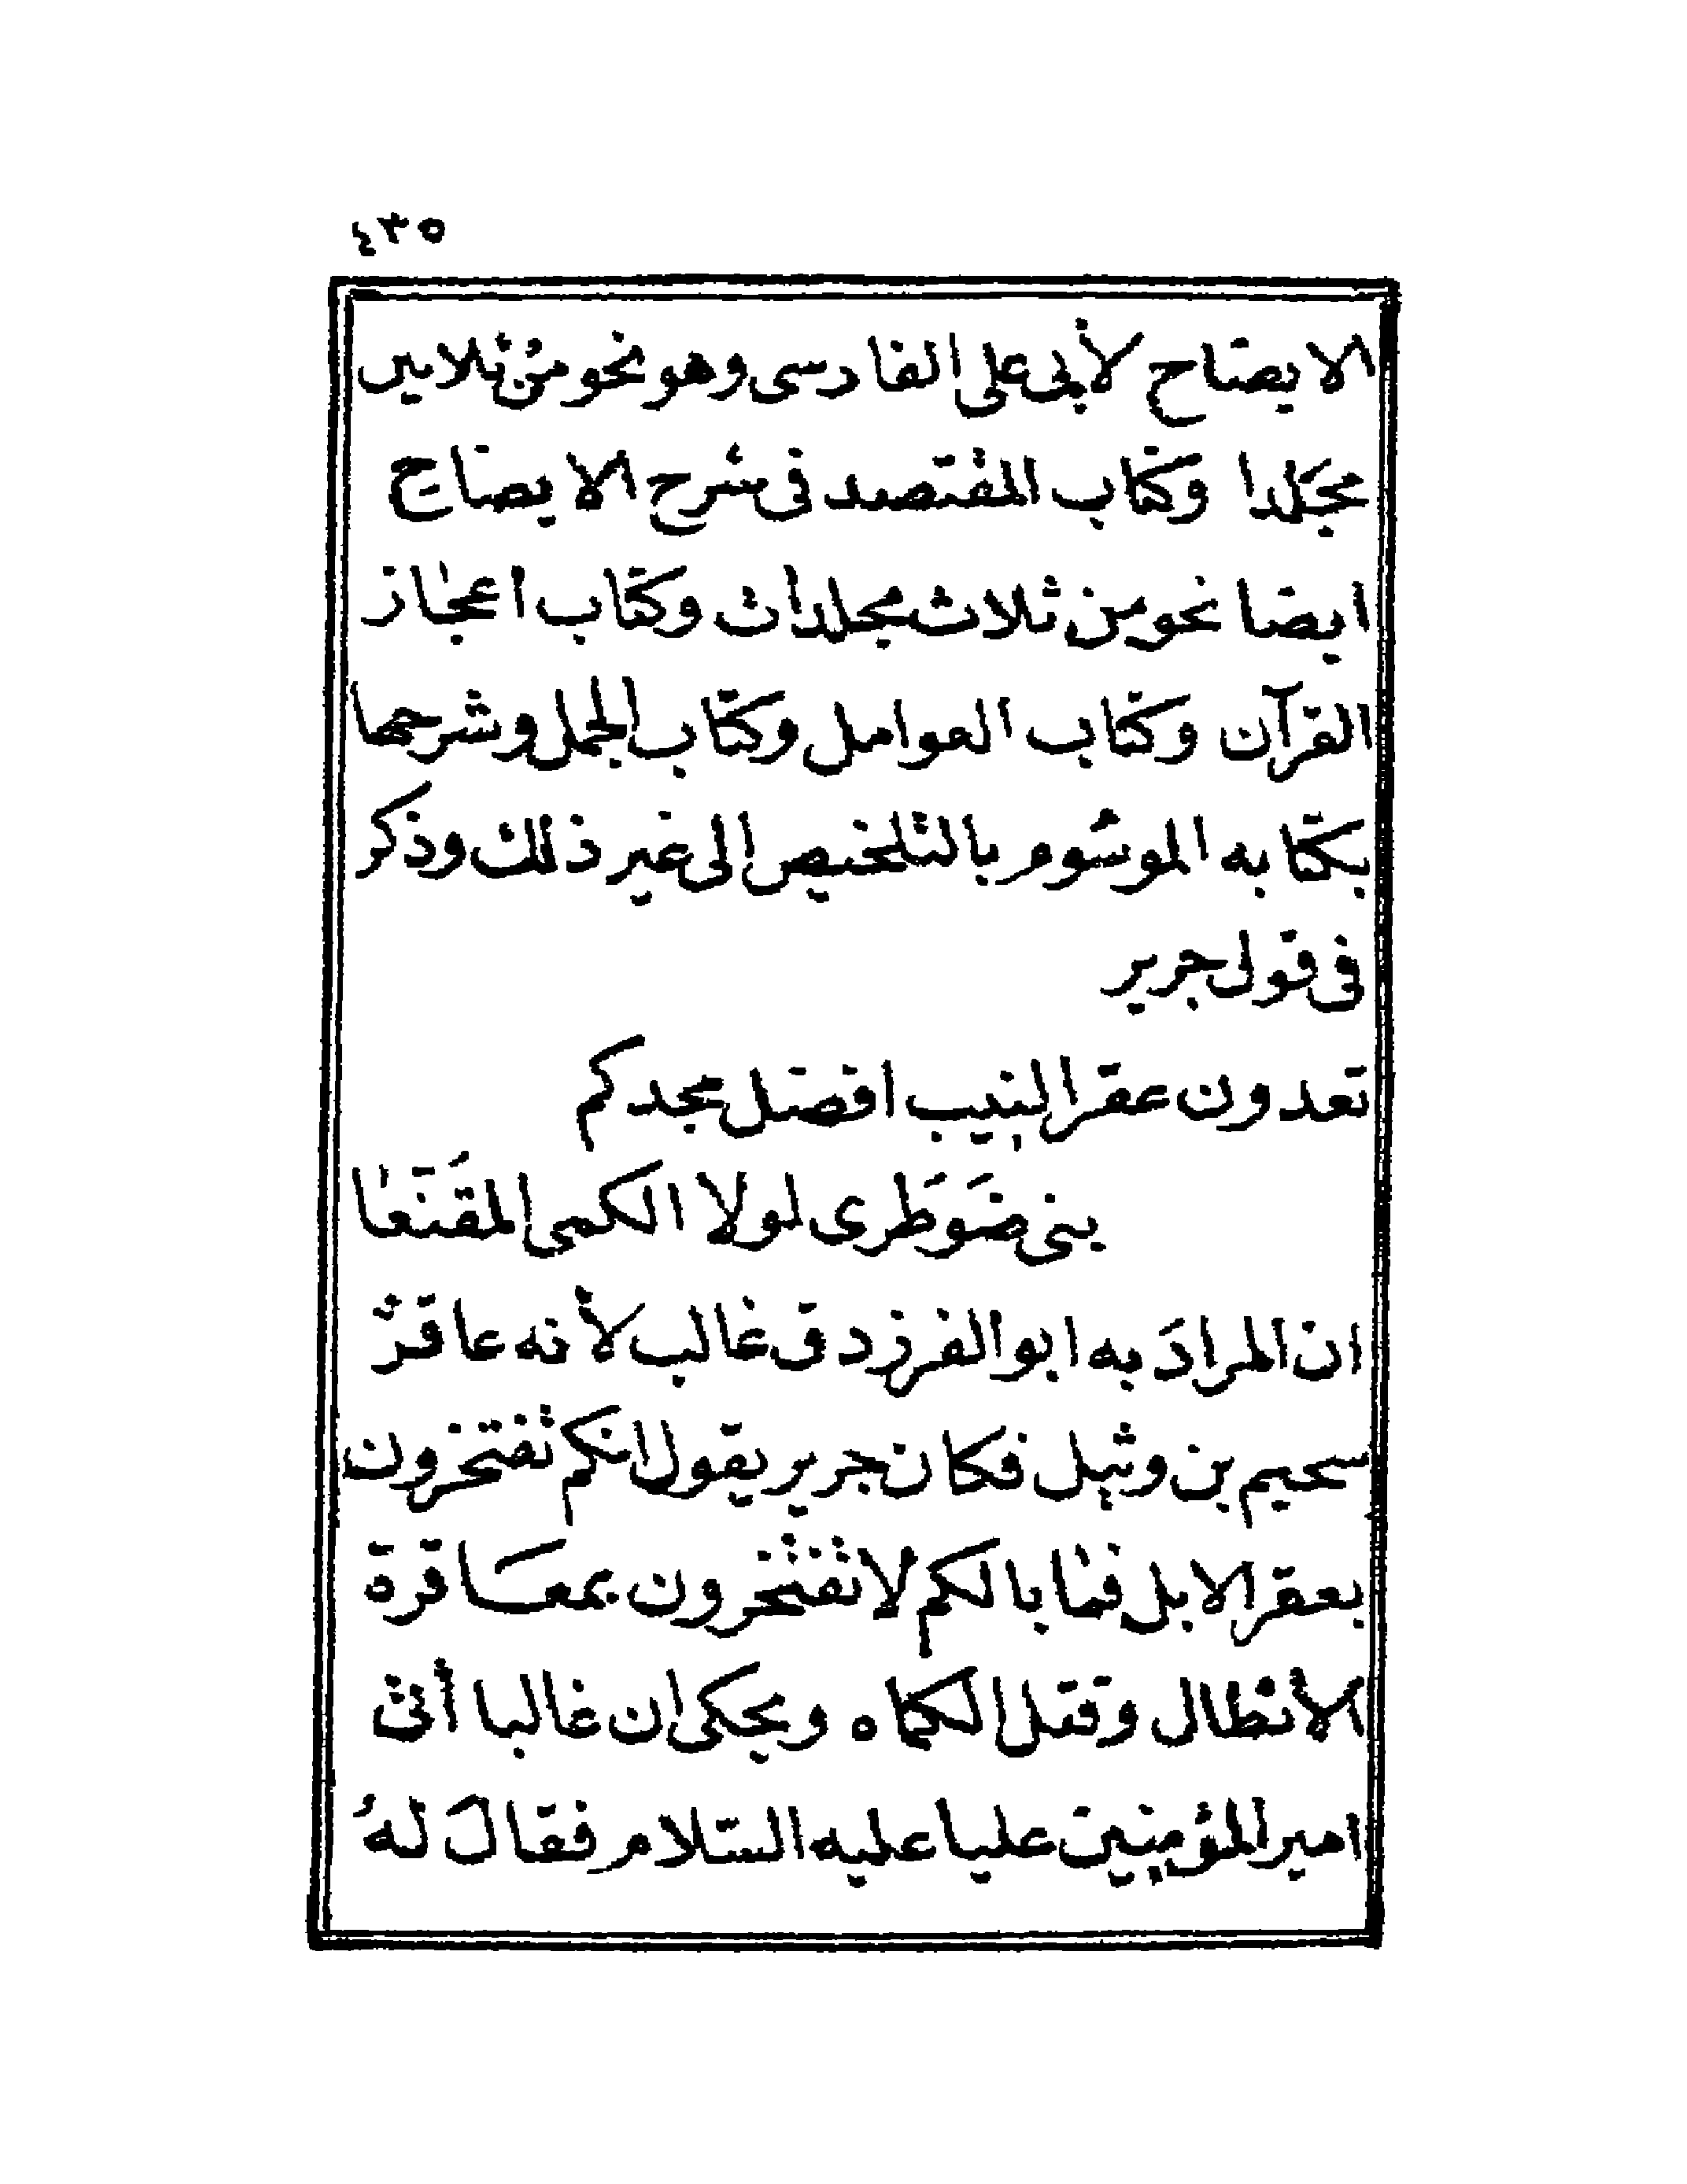 ٤٣٥
الايضاح لأبى على الفارسى وهو نحو من ثلاثين
مجلدا وكتاب المقتصد فى شرح الايضاح
ايضا نحو من ثلاث مجلدات وكتاب اعجاز
القرآن وكتاب العوامل وكتاب الجمل وشرحها
بكتابه الموسوم بالتلخيص الى غير ذلك وذكر
فى قول جرير
تعدون عقر النيب افضل مجدكم
بنى ضَوَطرى لولا الكمى المقَنّعا
ان المرادَ به ابو الفرزدق غالب لأنه عاقر
سحيم بن وثيل فكان جرير يقول انكم تفتخرون
بعقر الابل فما بالكم لا تفتخرون بمعاقرة
الأبطال وقتل الكماه ويحكى ان غالبا أتى
امير المؤمنين عليا عليه السّلام فقالَ لهُ